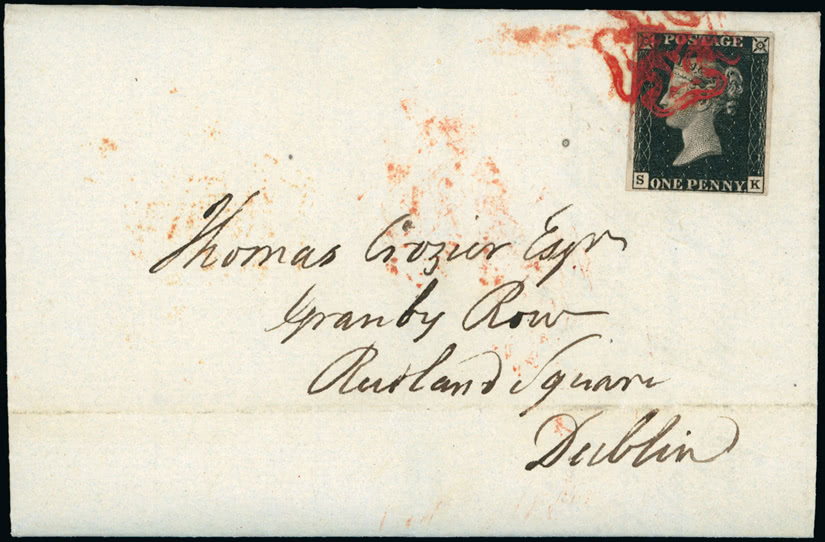 POSTAGE
S ONE PENNY K
Thomas Crozier Esqr
Granby Row
Rutland Square
Dublin